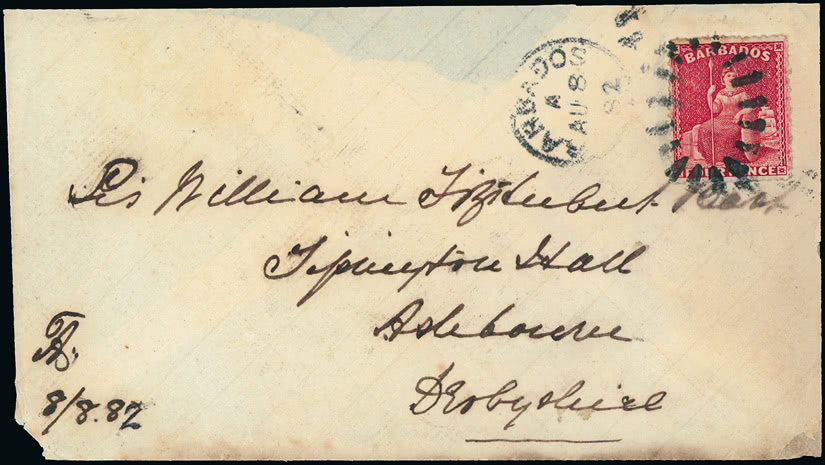 BARBADOS
A
AU 8
82
BARBADOS
PENCE
Sir William FitzHerbert Bart
Tissington Hall
Ashbourne
Derbyshire
8/8.82